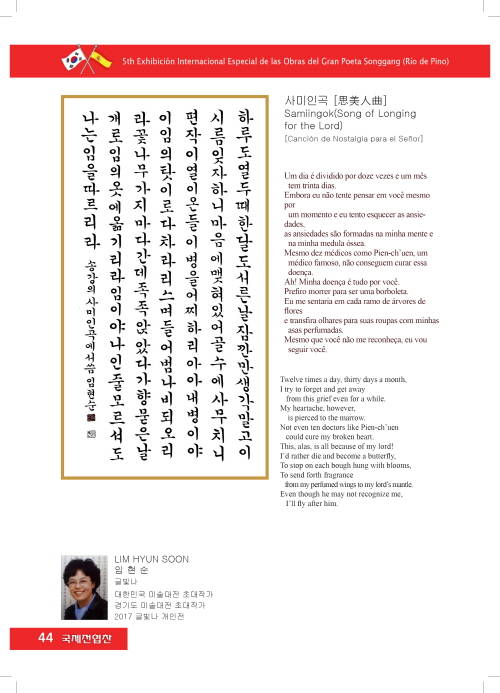 5th Exhibición Internacional Especial de las Obras del Gran Poeta Songgang (Río de Pino)
하루도열두때한달도서른날잠깐만생각말고이
시름잊자하니마음에맺혀있어골수에사무치니
편작이열이온들이병을어찌하리아아내병이야
이임의탓이로다차라리스며들어범나비되오리
라꽃나무가지마다간데족족앉았다가향묻은날
개로임의옷에옮기리라임이야나인줄모르셔도
나는임을따르리라
송강의사미인곡에서씀임현순
사미인곡 [思美人曲]
Samiingok(Song of Longing
for the Lord)
[Canción de Nostalgia para el Señor]
Um dia é dividido por doze vezes e um mês
tem trinta dias.
Embora eu não tente pensar em você mesmo
por
um momento e eu tento esquecer as ansie-
dades,
as ansiedades são formadas na minha mente e
na minha medula óssea.
Mesmo dez médicos como Pien-ch'uen, um
médico famoso, não conseguem curar essa
doença.
Ah! Minha doença é tudo por você.
Prefiro morrer para ser uma borboleta.
Eu me sentaria em cada ramo de árvores de
flores
e transfira olhares para suas roupas com minhas
asas perfumadas.
Mesmo que você não me reconheça, eu vou
seguir você.
Twelve times a day, thirty days a month,
I try to forget and get away
from this grief even for a while.
My heartache, however,
is pierced to the marrow.
Not even ten doctors like Pien-ch'uen
could cure my broken heart.
This, alas, is all because of my lord!
I'd rather die and become a butterfly,
To stop on each bough hung with blooms,
To send forth fragrance
from my perfumed wings to my lord's mantle.
Even though he may not recognize me,
I'll fly after him.
LIM HYUN SOON
임 현 순
글빛나
대한민국 미술대전 초대작가
경기도 미술대전 초대작가
2017 글빛나 개인전
44 국제전업산